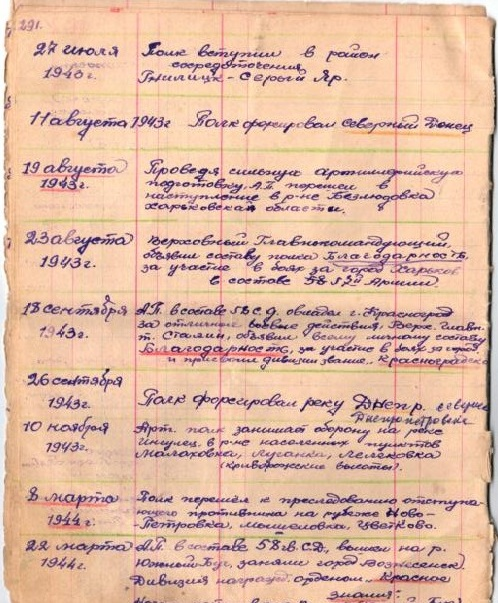 291.
27 июля
1943г.
Полк вступил в район
сосредоточения
Гнилицк-Серый Яр.
11 августа 1943г Полк форсировал Северный Донец
19 августа
1943г.
Проведя сильную Артиллерийскую
подготовку, А.П. перешел в
наступление в р-не Безлюдовка
Харьковская области.
23 августа
1943г.
Верховный Главнокомандующий,
объявил составу полка Благодарность,
за участие в боях за город Харьков
в составе Армии
18 сентября
1943г.
А.П. в составе 58 С.Д. овладел г. Красноград
за отличные боевые действия, Верх. Главн.
т. Сталин, объявил всему личному составу
Благодарность, за участие в боях за город
и присвоил дивизии звание „Красноградск
26 сентября
1943г.
Полк форсировал реку Днепр, северне
Днепропетровска
10 ноября
1943г.
Арт. полк занимает оборону на реке
Ингулец в р-не населенных пунктов
Малаховка, Луганка, Лелековка
(Криворожские высоты).
8 марта
1944г.
Полк перешёл к преследованию отступа
ющего противника на рубеже Ново-
-Петровка, Цветково.
22 марта
1944г.
А.П. в составе 58 гв. С.Д., вышел на р.
Южный Буг, заняли город Вознесенск.
Дивизия награжд. орденом „Красное
знамя".